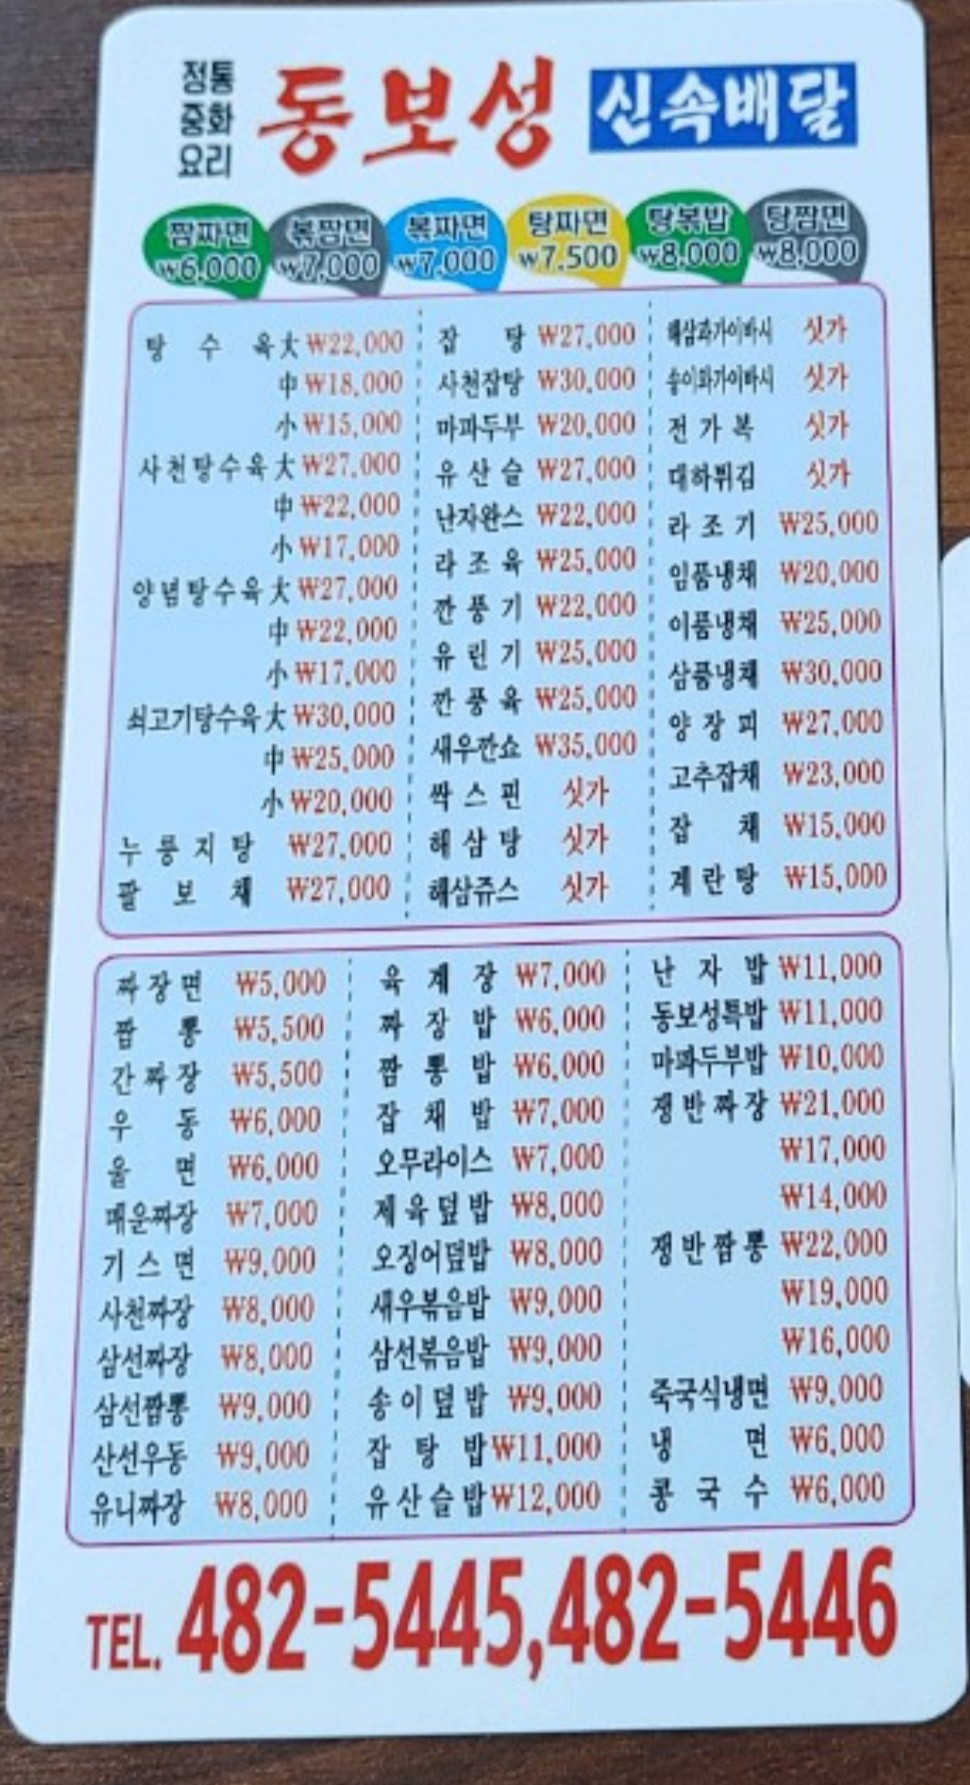 정통
중화
요리
동보성
신속배달
짬짜면 ₩6,000
볶짬면 ₩7,000
볶짜면 ₩7,000
탕짜면 ₩7.500
탕볶밥 ₩8,000
탕짬면 ₩8,000
탕 수 육 大 ₩22,000
中 ₩18,000
小 ₩15,000
사천탕수육 大 ₩27,000
中 ₩22,000
小 ₩17,000
양념탕수육 大 ₩27,000
中 ₩22,000
小 ₩17,000
쇠고기탕수육 大 ₩30,000
中 ₩25,000
小 ₩20,000
누룽지탕 ₩27,000
팔 보 채 ₩27,000
잡 탕 ₩27,000
사천잡탕 ₩30,000
마파두부 ₩20,000
유 산 슬 ₩27,000
난자완스 ₩22,000
라 조 육 ₩25,000
깐 풍 기 ₩22,000
유 린 기 ₩25,000
깐 풍 육 ₩25,000
새우깐쇼 ₩35,000
싹 스 핀 싯가
해 삼 탕 싯가
해삼쥬스 싯가
해삼과가이바시 싯가
송이와가이바시 싯가
전 가 복 싯가
대하튀김 싯가
라 조 기 ₩25,000
일품냉채 ₩20,000
이품냉채 ₩25,000
삼품냉채 ₩30,000
양 장 피 ₩27,000
고추잡채 ₩23,000
잡 채 ₩15,000
계 란 탕 ₩15,000
짜 장 면 ₩5,000
짬 뽕 ₩5,500
간 짜 장 ₩5,500
우 동 ₩6,000
울 면 ₩6,000
매운짜장 ₩7,000
기 스 면 ₩9,000
사천짜장 ₩8,000
삼선짜장 ₩8,000
삼선짬뽕 ₩9,000
산선우동 ₩9,000
유니짜장 ₩8,000
육 계 장 ₩7,000
짜 장 밥 ₩6,000
짬 뽕 밥 ₩6,000
잡 채 밥 ₩7,000
오무라이스 ₩7,000
제육덮밥 ₩8,000
오징어덮밥 ₩8,000
새우볶음밥 ₩9,000
삼선볶음밥 ₩9,000
송이덮밥 ₩9,000
잡 탕 밥 ₩11,000
유산슬밥 ₩12,000
난 자 밥 ₩11,000
동보성특밥 ₩11,000
마파두부밥 ₩10,000
쟁반짜장 ₩21,000
₩17,000
₩14,000
쟁반짬뽕 ₩22,000
₩19,000
₩16,000
죽국식냉면 ₩9,000
냉 면 ₩6,000
콩 국 수 ₩6,000
TEL. 482-5445,482-5446